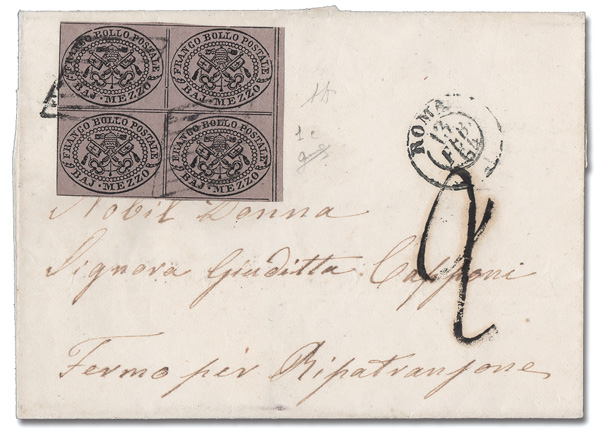 FRANCO BOLLO POSTALE
BAJ·MEZZO
FRANCO BOLLO POSTALE
BAJ·MEZZO
FRANCO BOLLO POSTALE
BAJ·MEZZO
FRANCO BOLLO POSTALE
BAJ·MEZZO
ROMA
13
FEB
64
1c
2
Nobil Donna
Signora Giuditta Capponi
Fermo per Ripatransone